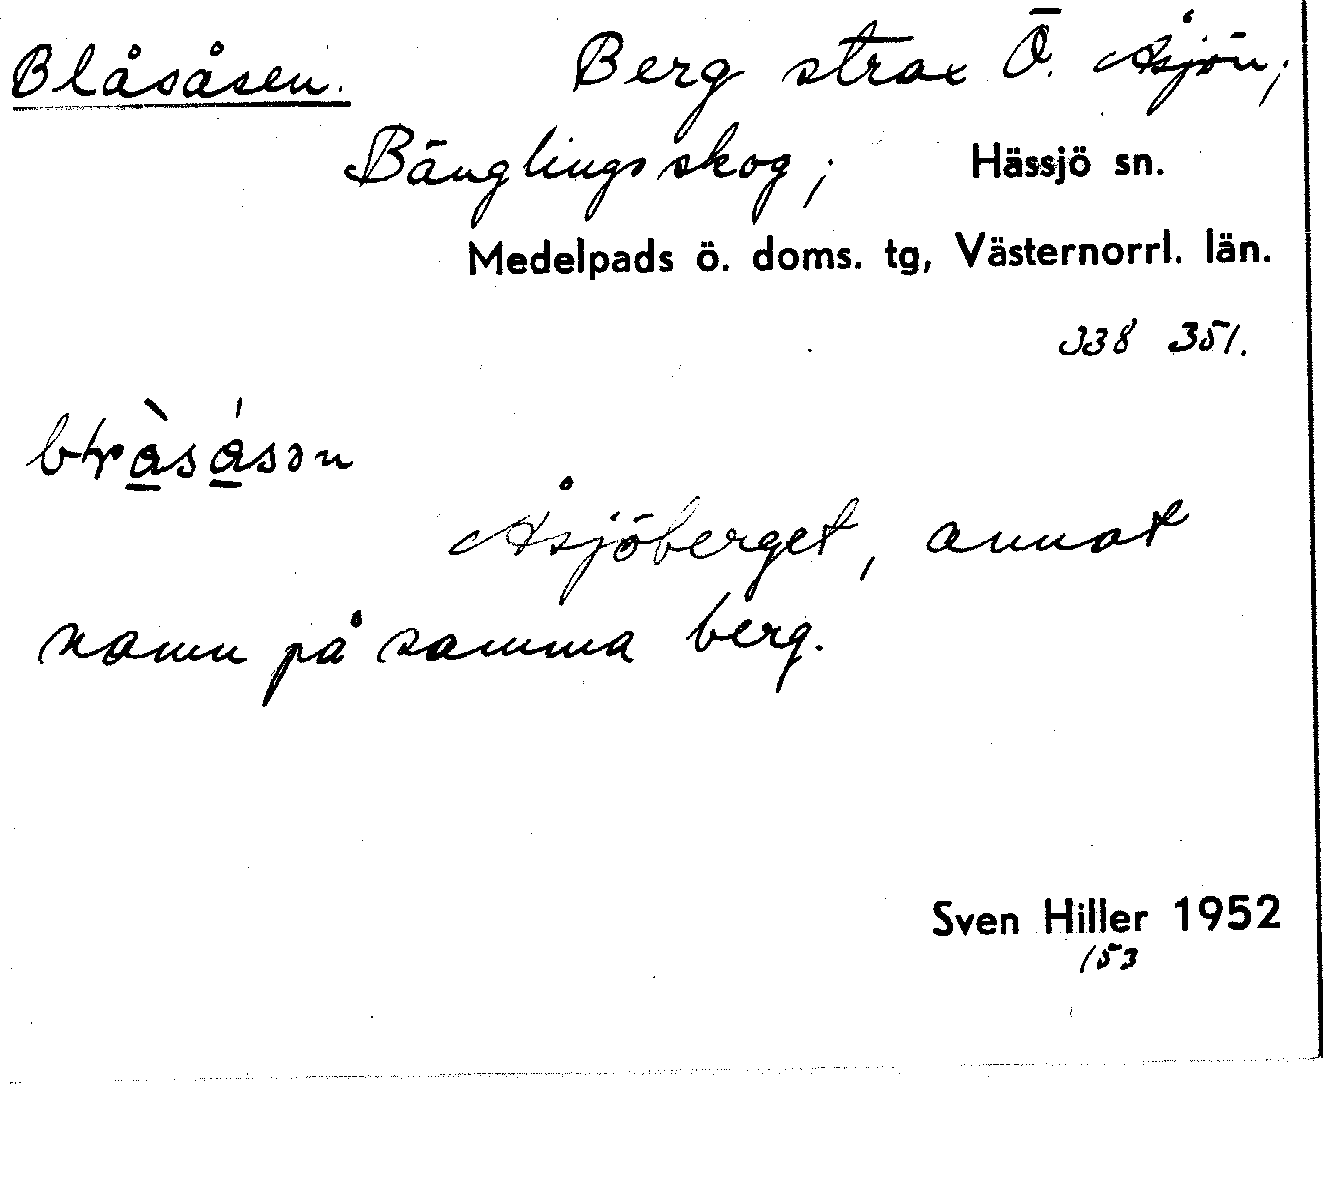 Blåsåsen. Berg strax Ö. Åsjön;
Bänglingsskog; Hässjö sn.
Medelpads ö. doms. tg, Västernorrl. län.
338 351.
Åsjöberget, annat
namn på samma berg.
Sven Hiller 1952
153